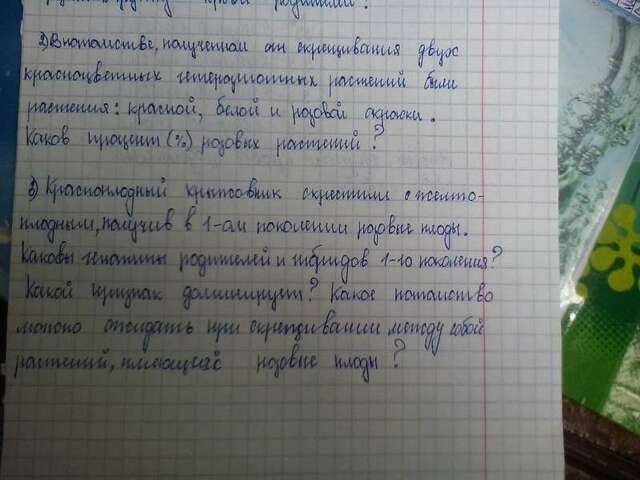 группу крови родителей?
2) В потомстве, полученном от скрещивания двух
красноцветных гетерозиготных растений были
растения: красной, белой и розовой окраски.
Каков процент (%) розовых растений?
3) Красноплодный крыжовник скрестили с желто-
плодным, получив в 1-ом поколении розовые плоды.
Каковы генотипы родителей и гибридов 1-го поколения?
Какой признак доминирует? Какое потомство
можно ожидать при скрещивании между собой
растений, имеющих розовые плоды?